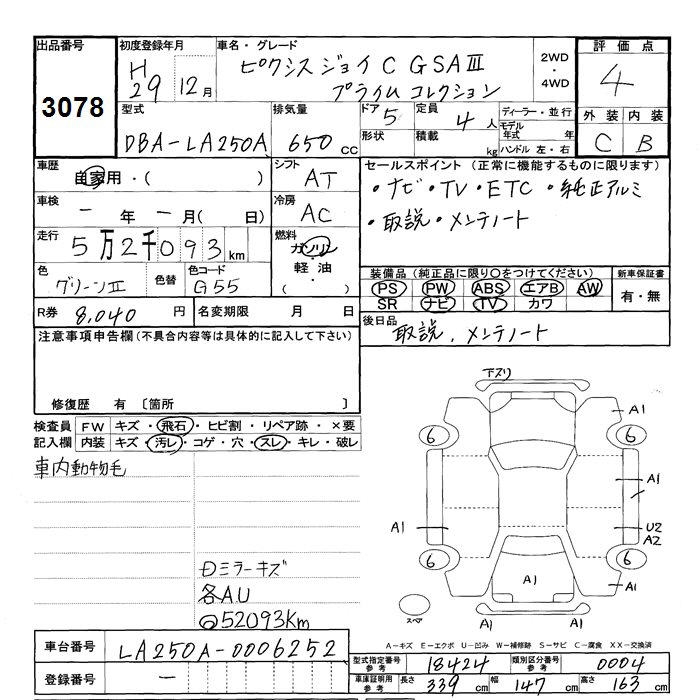 出品番号
3078
初度登録年月
H29 12月
車名・グレード
ピクシス ジョイC GSAⅢ
プライム コレクション
2WD
・
4WD
評価点
4
外装 内装
C B
型式
DBA-LA250A
排気量
650cc
ドア 5
形状
定員 4人
積載 kg
ディーラー・並行
モデル年式 年
ハンドル 左・右
車歴
自家用・( )
シフト
AT
セールスポイント(正常に機能するものに限ります)
・ナビ・TV・ETC・純正アルミ
・取説・メンテノート
車検
ー年ー月(日)
冷房
AC
走行
5万2千093km
燃料
ガソリン
・
軽油
( )
色
グリーンⅡ
色替
色コード
G55
装備品(純正品に限り○をつけてください)
PS PW ABS エアB AW
SR ナビ TV カワ
新車保証書
有・無
R券 8,040円
名変期限 月 日
後日品
取説、メンテノート
注意事項申告欄(不具合内容等は具体的に記入して下さい)
修復歴 有〔箇所 〕
検査員記入欄
FW キズ・飛石・ヒビ割・リペア跡・×要
内装 キズ・汚レ・コゲ・穴・スレ・キレ・破レ
車内動物毛
ミラーキズ
各AU
52093Km
下スリ
A1
6 6
A1
A1 U2
A2
6 6
A1
A1
スペア
A1 A1
A-キズ E-エクボ U-凹み W-補修跡 S-サビ C-腐食 XX-交換済
車台番号
LA250A-0006252
登録番号
ー
型式指定番号参考 18424
類別区分番号参考 0004
車庫証明用参考 長さ 339cm 幅 147cm 高さ 163cm